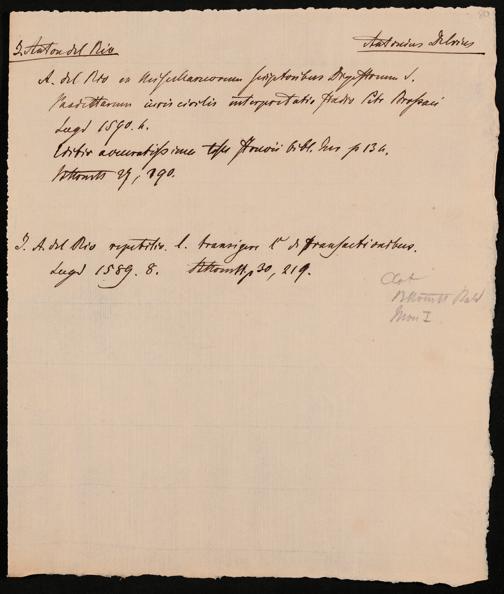 J. Anton del Rio
Antonius Delrius
A. del Rio ex Miscellaneorum scriptoribus Digestorum s.
Pandectarum iuris civilis interpretatio studio Petr Brossaei
Lugd 1590. 4.
Editio accuratissima teste Struvii bibl. Jur p 134.
29, 190.
J. A. del Rio repetitio. l. transigere C de transactionibus.
Lugd 1589. 8. p 30, 219.
I